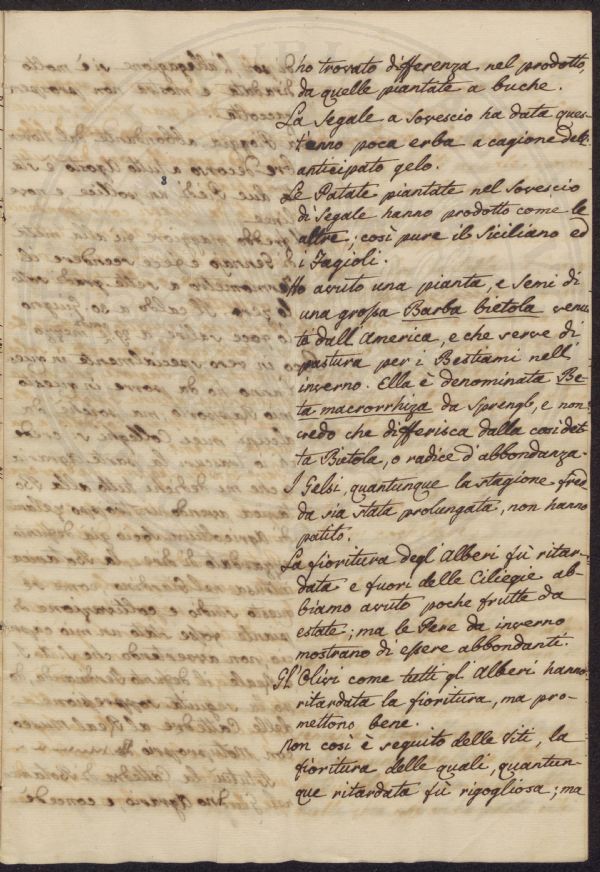 ho trovato differenza nel prodotto,
da quelle piantate a buche.
La Segale a Sovescio ha data ques-
t'anno poca erba a cagione dell'
anticipato gelo.
Le Patate piantate nel Sovescio
di Segale hanno prodotto come le
altre; così pure il Siciliano ed
i Fagioli.
Ho avuto una pianta, e semi di
una grossa Barba bietola venu-
ta dall'America, e che serve di
pastura per i Bestiami nell'
inverno. Ella è denominata Be-
ta macrorrhiza da Sprengb, e non
credo che differisca dalla così det-
ta Bietola, o radice d'abbondanza.
I Gelsi, quantunque la stagione fred-
da sia stata prolungata, non hanno
patito.
La fioritura degl'Alberi fù ritar-
data e fuori delle Ciliegie ab-
biamo avuto poche frutte da
estate; ma le Pere da inverno
mostrano di essere abbondanti.
Gl'Olivi come tutti gl'Alberi hanno
ritardata la fioritura, ma pro-
mettono bene.
Non così è seguito delle Viti, la
fioritura delle quali, quantun-
que ritardata fù rigogliosa; ma